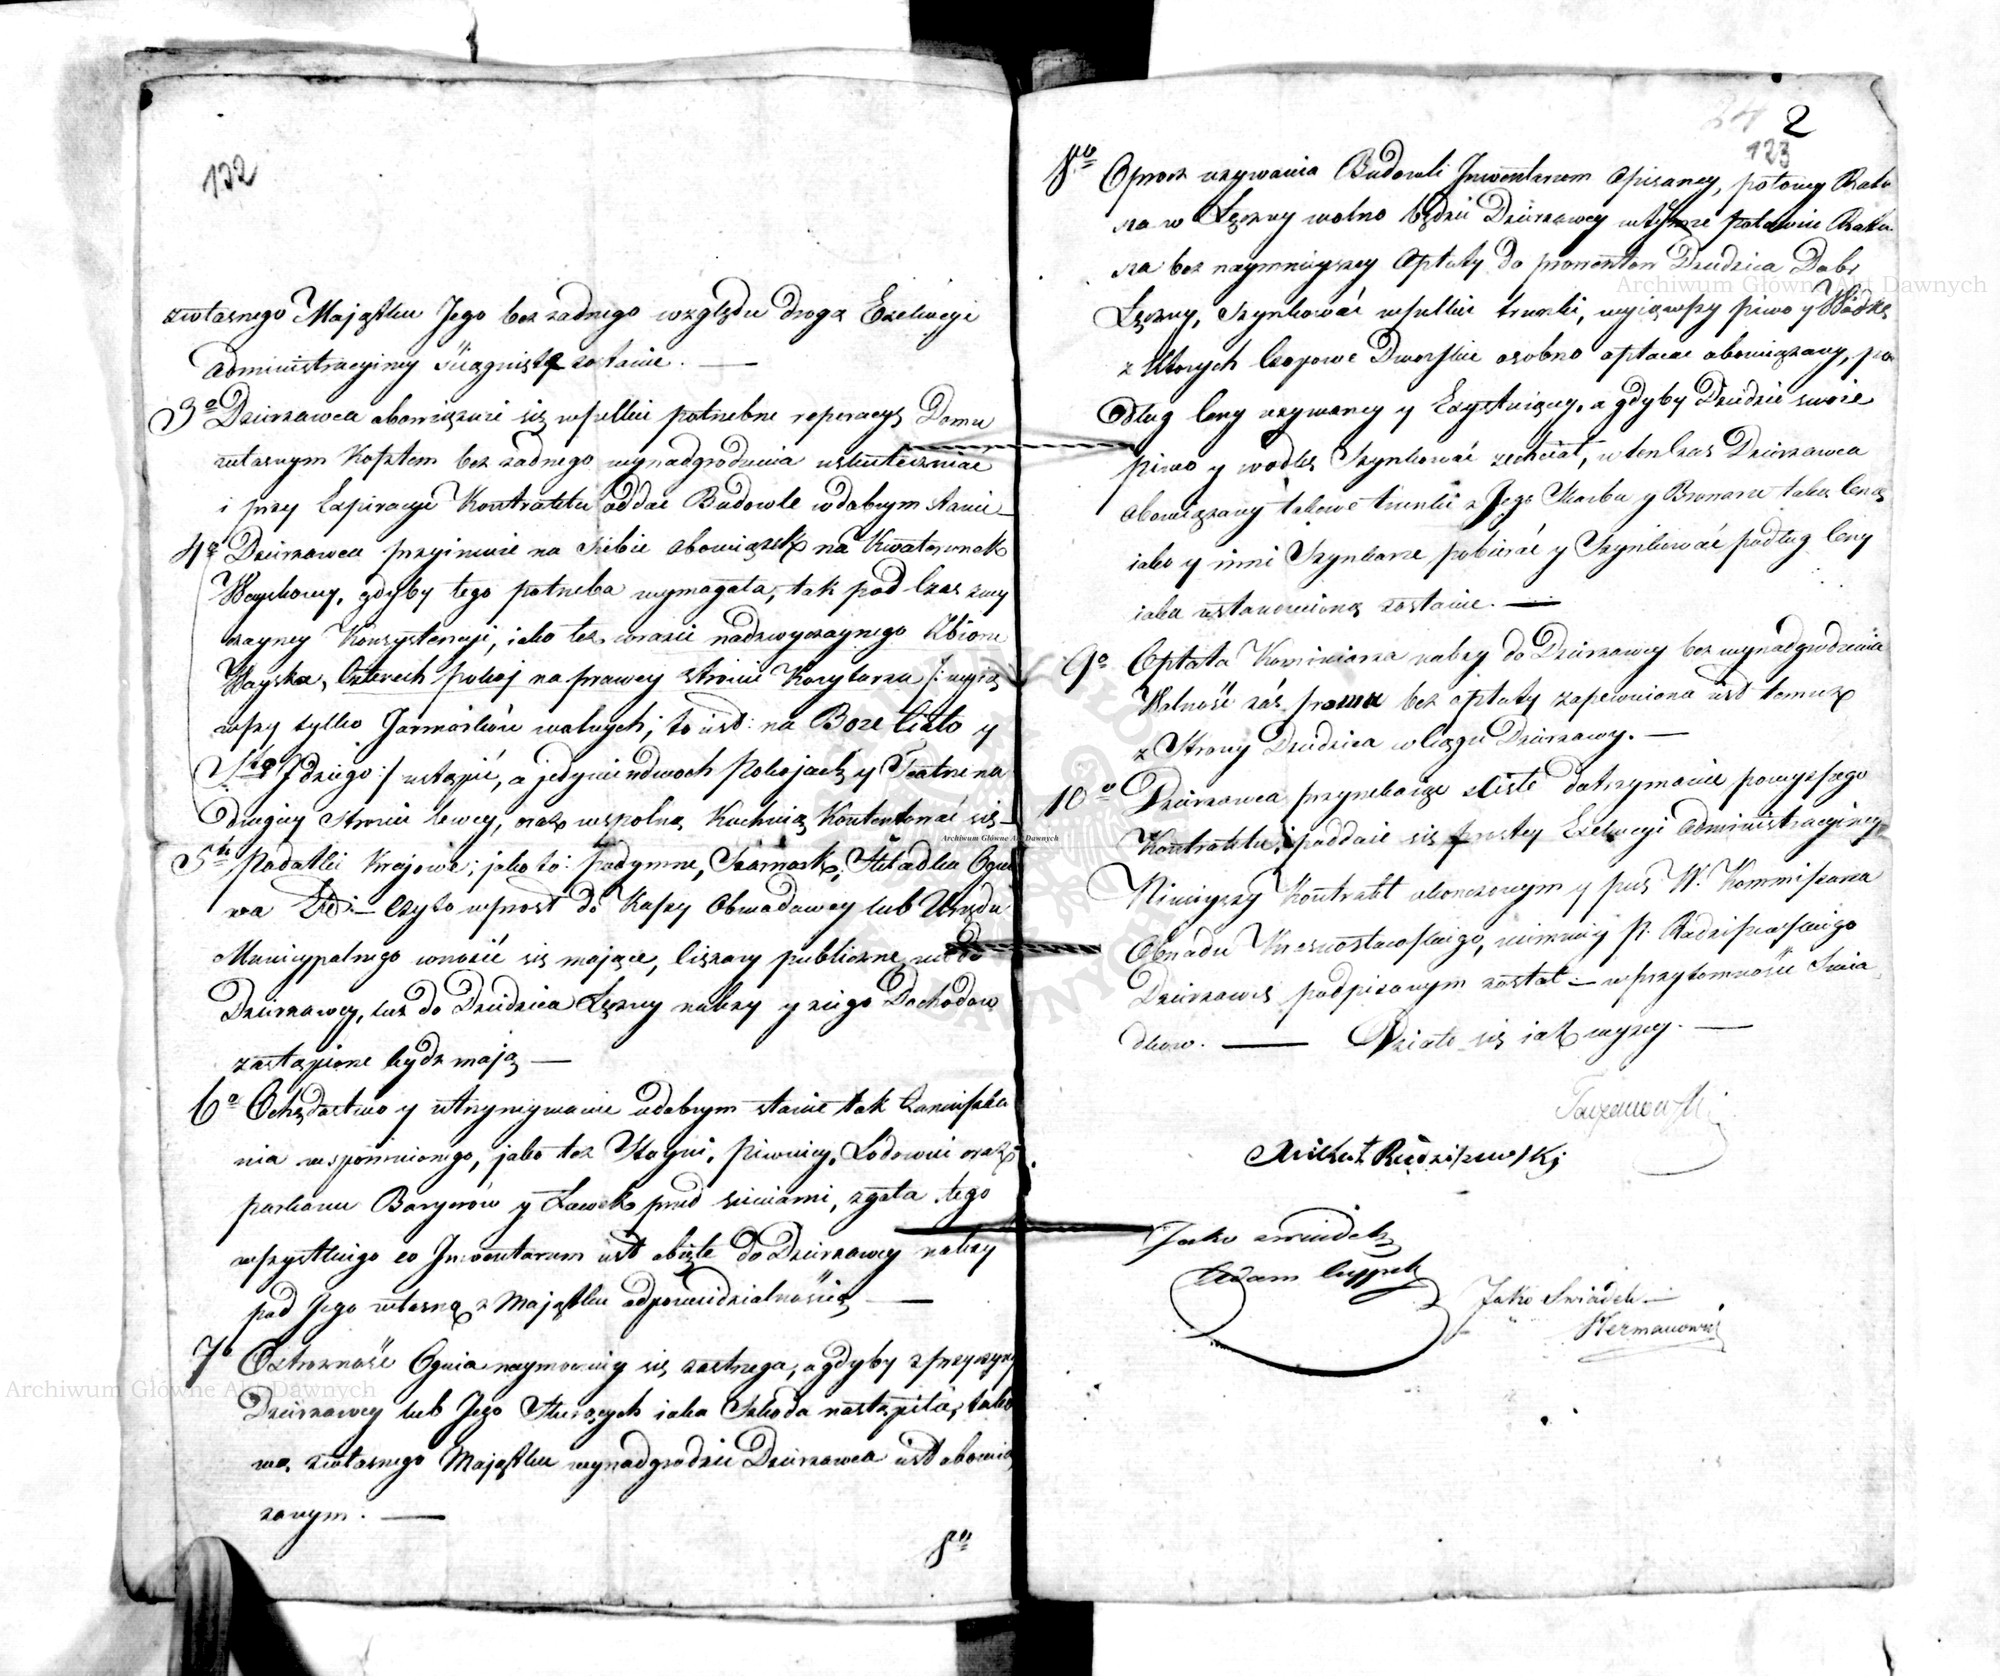 122
zwłasnego Majątku Jego bez żadnego względu drogą Exekucyi
Administracyiney ściągnięte zostanie. —
3o Dzierzawca obowięzuie się wszelkie potrzebne reperacye Domu
własnym Kosztem bez żadnego wynadgrodzenia uskuteczniać
i przy Expiracyi Kontraktu oddać Budowle w dobrym stanie —
4o Dzierzawca przyimuie na siebie obowiązek na Kwaterunek
Woyskowy, gdyby tego potrzeba wymagała, tak pod Czas zwy
czayney Konsystencyi, iako też w razie nadzwyczaynego Zbioru
Woyska, Czterech pokoj na prawey stronie Korytarza /: wyią
wszy tylko Jarmarków walnych; to iest: na Boże Ciało y
Sto Idziego :/ ustąpić, a jedynie w dwoch Pokojach y Teatrze na
drugiey stronie lewey, oraz wspolną Kuchnią Kontentować się —
5to Podatki Krajowe; jako to: podymne, Szarwark, Składka Ogni
wa — czyto wprost do Kassy Obwodowey lub Urzędu
Municypalnego wnosić się maiące, Ciężary publiczne nie do
Dzierzawcy, lecz do Dziedzica Łęczny należy y z iego Dochodow
zastąpione bydz mają —
6o Ochędostwo y utrzymywanie w dobrym stanie tak Zamieszka
nia wspomnionego, jako też Stayni, piwnicy, Lodowni oraz
parkanu Baryerów y Ławek przed sieniami, zgoła tego
wszystkiego co Inwentarzem iest obięte do Dzierzawcy należy
pod Jego własną z Majątku odpowiedzialnością —
7o Ostrożność Ognia naymocniey się zastrzega, a gdyby z przyczyny
Dzierzawcy lub Jego Służących iaka Szkoda nastąpiła, tako
wą zwłasnego Majątku wynadgrodzić Dzierzawca iest obowią
zanym. —
8vo
2
123
8vo Oprocz używania Budowli Inwentarzem Opisaney, połowy Ratu
sza w Łęczny wolno będzie Dzierzawcy w teyże połowie Ratu
sza bez naymnieyszey Opłaty do prowentow Dziedzica Dobr
Łęczny, Szynkować wszelkie trunki, wyiąwszy piwo y Wódkę
z ktorych Czopowe Dworskie osobno opłacać obowiązany, po
dług Ceny używaney y Exystuiącey, a gdyby Dziedzic swoie
piwo y wodkę Szynkować zechciał, w ten Czas Dzierzawca
obowiązany takowe trunki z Jego Skarbu y Browaru taką Ceną
iako y inni Szynkarze pobierać y Szynkować podług Ceny
iaka ustanowioną zostanie. —
9o Opłata Kominiarza należy do Dzierzawcy bez wynadgrodzenia
Wolność zaś bez opłaty zapewniona iest temuż
z Strony Dziedzica w Ciągu Dzierzawy. —
10o Dzierzawca przyrzekaiąc ściśle dotrzymanie powyższego
Kontraktu, poddaie się prostey Exekucyi Administracyiney
Ninieyszy Kontrakt ukończonym y przez W. Kommissarza
Obwodu Krasnostawskiego, niemniey P. Radziszewskiego
Dzierzawcę podpisanym został — w przytomności Świa
dkow. — Działo się iak wyżey. —
Radziszewskj
Jako swiadek
Adam
Jako Swiadek —
Hermanowicz